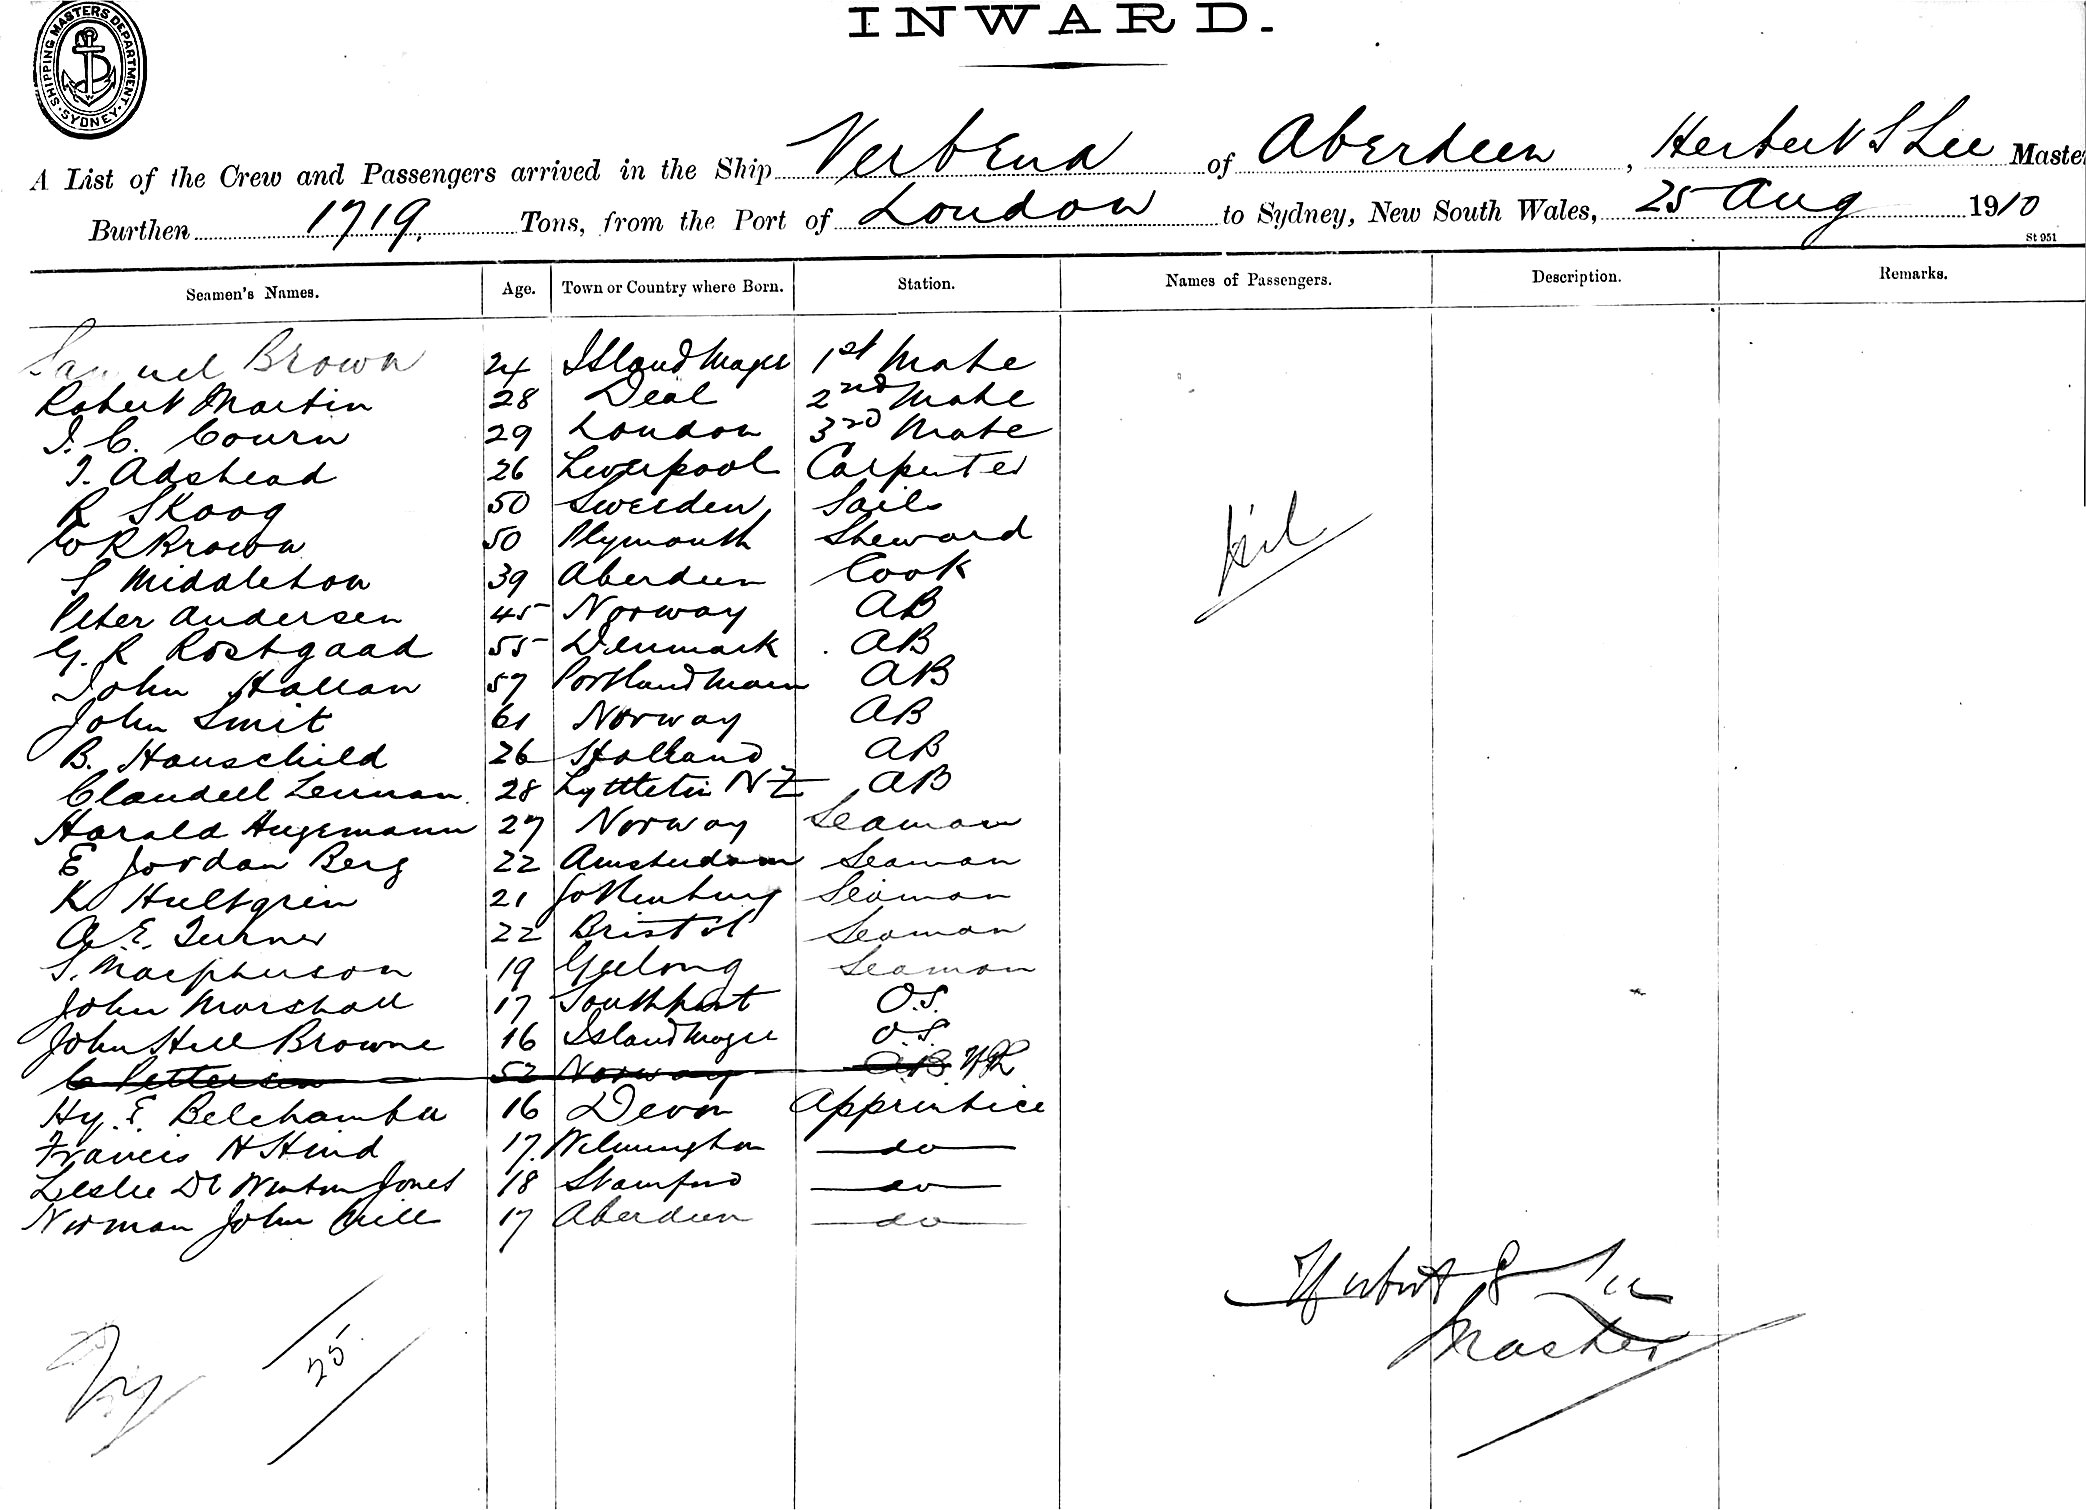 INWARD.
SHIPPING MASTERS DEPARTMENT. SYDNEY.
A List of the Crew and Passengers arrived in the Ship Verbena of Aberdeen, Herbert S Lee Maste
Burthen 1719. Tons, from the Port of London to Sydney, New South Wales, 25 Aug 1910
St 951
Seamen's Names. Age. Town or Country where Born. Station. Names of Passengers. Description. Remarks.
Samuel Brown 24 Island Magee 1st Mate
Robert Martin 28 Deal 2nd Mate
J. C. Courn 29 London 3rd Mate
J. Adshead 26 Liverpool Carpenter
R Skoog 50 Sweeden Sails
W R Brown 50 Plymouth Steward
S Middleton 39 Aberdeen Cook
Nil
Peter Andersen 45 Norway AB
G. R Rostgaad 55 Denmark AB
John Hallan 57 Portland Maine AB
John Smit 61 Norway AB
B. Hauschild 26 Holland AB
Claudell Lennan 28 Lyttleton NZ AB
Harald Hugemann 27 Norway Seaman
E Jordan Berg 22 Amsterdam Seaman
K Hultgrin 21 Gottenburg Seaman
A. E. Turner 22 Bristol Seaman
S. Macpherson 19 Geelong Seaman
John Marshall 17 Southport O.S.
John Hill Browne 16 Island Magee O.S.
C Pettersen 52 Norway A.B.
Hy. E. Belchamber 16 Devon Apprentice
Francis H Hind 17. Wilmington do
Leslie De Winton Jones 18 Stamford do
Norman John 17 Aberdeen do
Herbert S Lee
Master
25